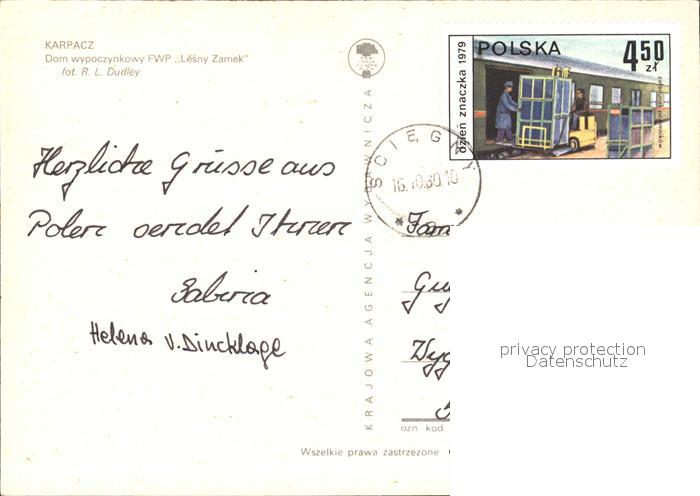 KARPACZ
Dom wypoczynkowy FWP „Leśny Zamek”
fot. R. L. Dudley
POLSKA
4 50 zł
dzień znaczka 1979
ŚCIĘGNY
16.10.80.10
KRAJOWA AGENCJA WYDAWNICZA
Herzliche Grüsse aus
Polen sendet Ihnen
Sabina
Helena v. Dincklage
Fam
ozn. kod.
Wszelkie prawa zastrzeżone
privacy protection
Datenschutz